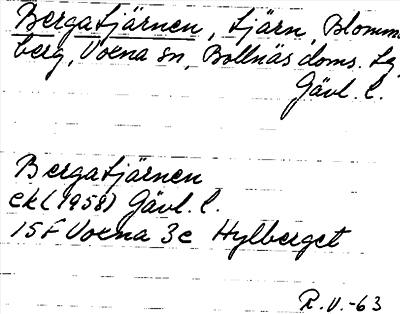 Bergatjärnen, tjärn, Blomm-
berg, Voxna sn, Bollnäs doms. lg,
Gävl. l.
Bergatjärnen
ek (1958) Gävl. l.
15F Voxna 3c Hylberget
R.V.-63